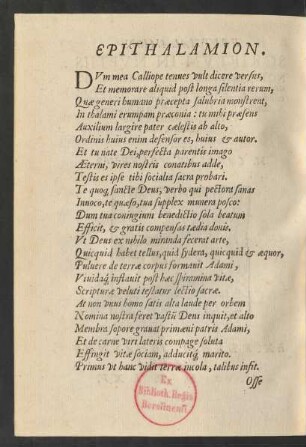 EPITHALAMION.
DVm mea Calliope tenues vult dicere versus,
Et memorare aliquid post longa silentia rerum,
Quæ generi humano præcepta salubria monstrent,
In thalami erumpam præconia: tu mihi præsens
Auxilium largire pater cælestis ab alto,
Ordinis huius enim defensor es, huius & autor.
Et tu nate Dei, perfecta parentis imago
Æterni, vires nostris conatibus adde,
Testis es ipse tibi socialia sacra probari.
Te quoq; sancte Deus, verbo qui pectora sanas
Innoco, te quæso, tua supplex munera posco:
Dum tua coniugium benedictio sola beatum
Efficit, & gratis compensas tædia donis.
Vt Deus ex nihilo miranda fecerat arte,
Quicquid habet tellus, quid sydera, quicquid & æquor,
Puluere de terræ corpus formauit Adami,
Viuidaq; inflauit post hæc spiramina vitæ,
Scripturæ veluti testatur lectio sacræ.
At non vnus homo satis alta laude per orbem
Nomina nostra feret vastũ Deus inquit, et alto
Membra sopore grauat primæui patris Adami,
Et de carne viri lateris compage soluta
Effingit vitæ sociam, adducitq; marito.
Primus vt hanc vidit terræ incola, talibus infit.
Osse
Ex
Biblioth. Regia
Berolinensi